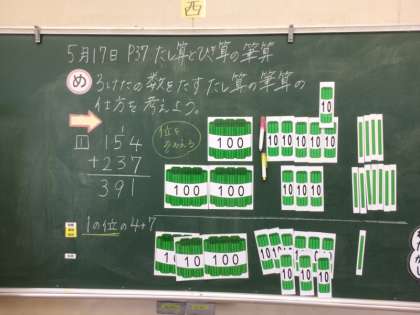 西
5月17日 P37 たし算とひき算の筆算
め 3けたの数をたすたし算の筆算の
仕方を考えよう。
1 154
+237
391
位を
そろえる
10
100 10 10 10 10 10
100 100 10 10 10
1の位の4+7
100 100 10 10 10
10 10 10